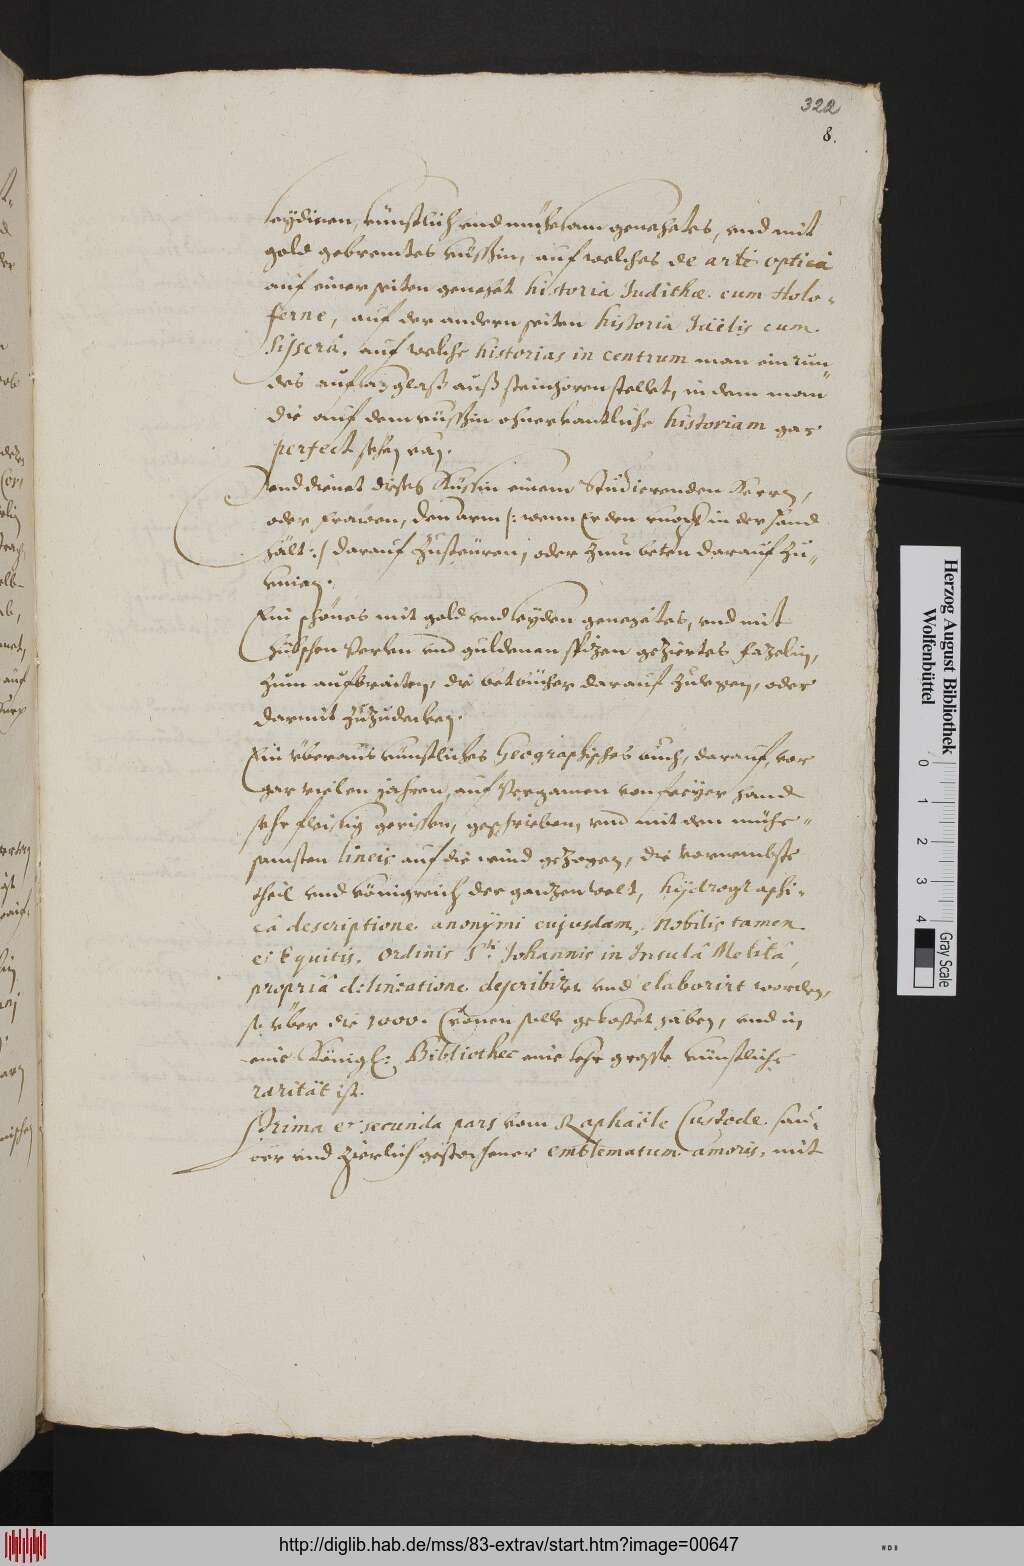 322
8.
seydinen, künstlich und mühesam genehetes, und mit
gold gebremtes küsslin, auf welches de arte optica
auf einer seiten genehet historia Judithæ cum Holo-
ferne, auf der andern seiten historia Jaëlis cum
Sisserâ, auf welche historias in centrum man ein run-
des glaß auß stellet, in dem man
die auf dem küsslin ohnerkantliche historiam gar
perfect sehen kan.
und dienet dises Küssin einem Studierenden Herrn,
oder frawen, den arm /: wenn Er den kopf in der hand
hält :/ darauf zusteüren, oder zum beten darauf zu-
knien.
Ein schönes mit gold und seyden genehetes, und mit
hübschen Perlen und guldenen spizen geziertes fazelin,
zum aufbraiten, die betbücher darauf zulegen, oder
darmit zuzudecken.
Ein überaus künstliches Geographisches buch, darauf, vor
gar vielen jahren, auf Pergamen von freyer hand
sehr fleissig gerissen, geschrieben, und mit den mühe-
samsten lineis auf die wind gezogen, die vornembste
theil und königreich der ganzen welt, hydrographi-
câ descriptione anonymi cujusdam, Nobilis tamen
et Equitis, Ordinis Sti. Johannis in Insulâ Melitâ,
propriâ delineatione describirt und elaborirt worden,
so über die 1000. Cronen solle gekostet haben, und in
eine Königl: Bibliothec eine sehr grosse künstliche
rarität ist.
Prima et secunda pars vom Raphaële Custode sau-
ber und zierlich gestochener emblematum amoris, mit
Herzog August Bibliothek
Wolfenbüttel
0 1 2 3 4
Gray Scale
http://diglib.hab.de/mss/83-extrav/start.htm?image=00647